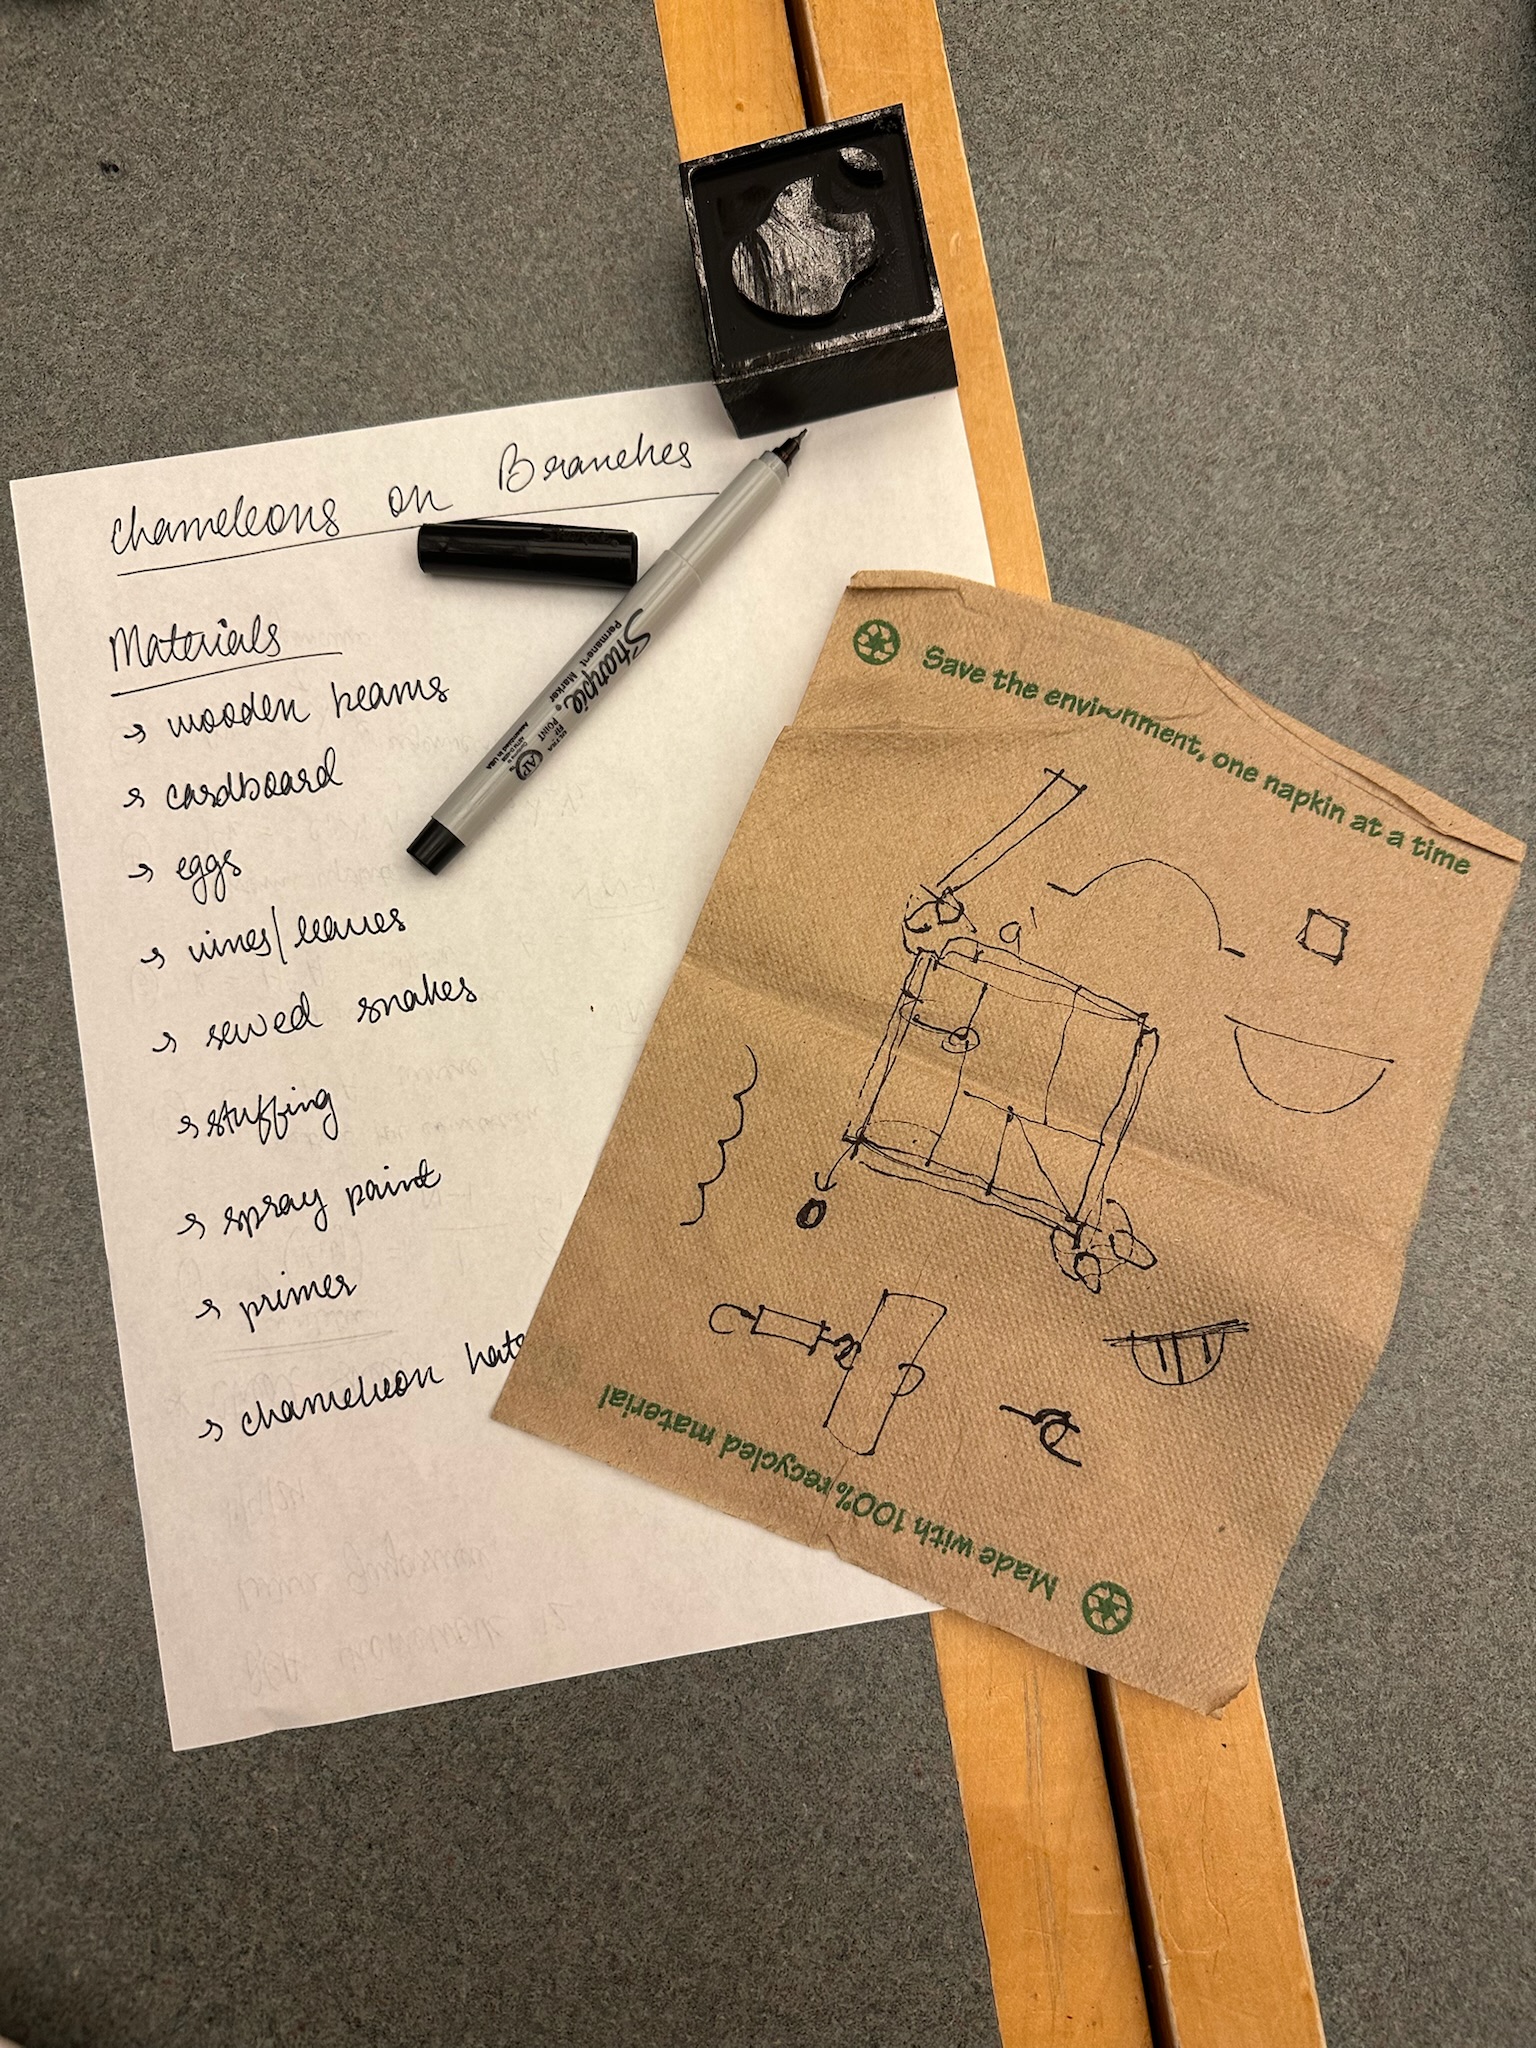 Chameleons on Branches
Materials
→ wooden beams
→ cardboard
→ eggs
→ vines/leaves
→ sewed snakes
→ stuffing
→ spray paint
→ primer
→ chameleon hats
Sharpie®
Permanent Marker
ULTRA FINE POINT
AP
Save the environment, one napkin at a time
9'
Made with 100% recycled material